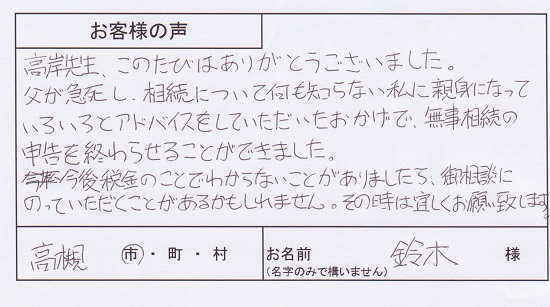 お客様の声
高岸先生、このたびはありがとうございました。
父が急死し、相続について何も知らない私に親身になって
いろいろとアドバイスをしていただいたおかげで、無事相続の
申告を終わらせることができました。
今後税金のことでわからないことがありましたら、御相談に
のっていただくことがあるかもしれません。その時は宜しくお願い致します
高槻 市・町・村 お名前 鈴木 様
(名字のみで構いません)